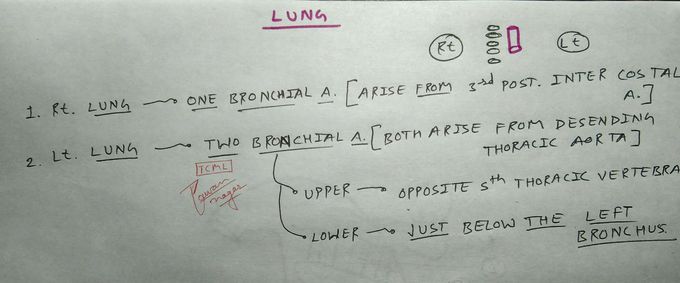 LUNG
Rt Lt
1. Rt. LUNG → ONE BRONCHIAL A. [ARISE FROM 3rd POST. INTER COSTAL
A.]
2. Lt. LUNG → TWO BRONCHIAL A. [BOTH ARISE FROM DESENDING
THORACIC AORTA]
TCML
UPPER → OPPOSITE 5th THORACIC VERTEBRA
LOWER → JUST BELOW THE LEFT
BRONCHUS.